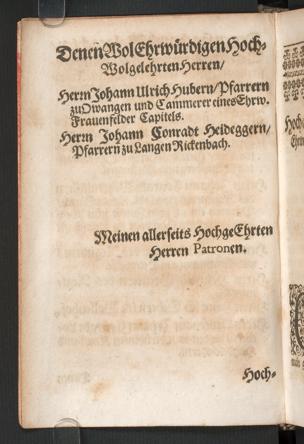 Denen WolEhrwürdigen Hoch-
Wolgelehrten Herren/
Herrn Johann Ulrich Hubern/Pfarrern
zu Dwangen und Cammerer eines Ehrw.
Frauenfelder Capitels.
Herrn Johann Conradt Heideggern/
Pfarrern zu Langen Rickenbach.
Meinen allerseits HochgeEhrten
Herren Patronen.
Hoch-